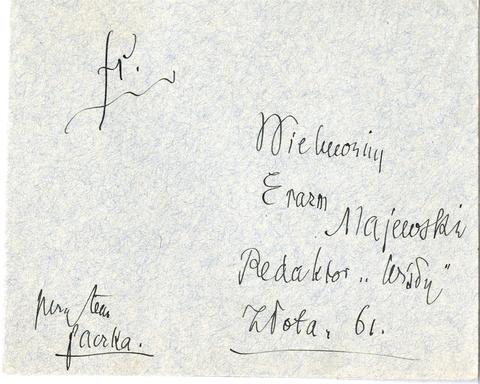 fr.
Wielmożny
Erazm
Majewski
Redaktor „Wisły"
Złota. 61.
przy tem
paczka.